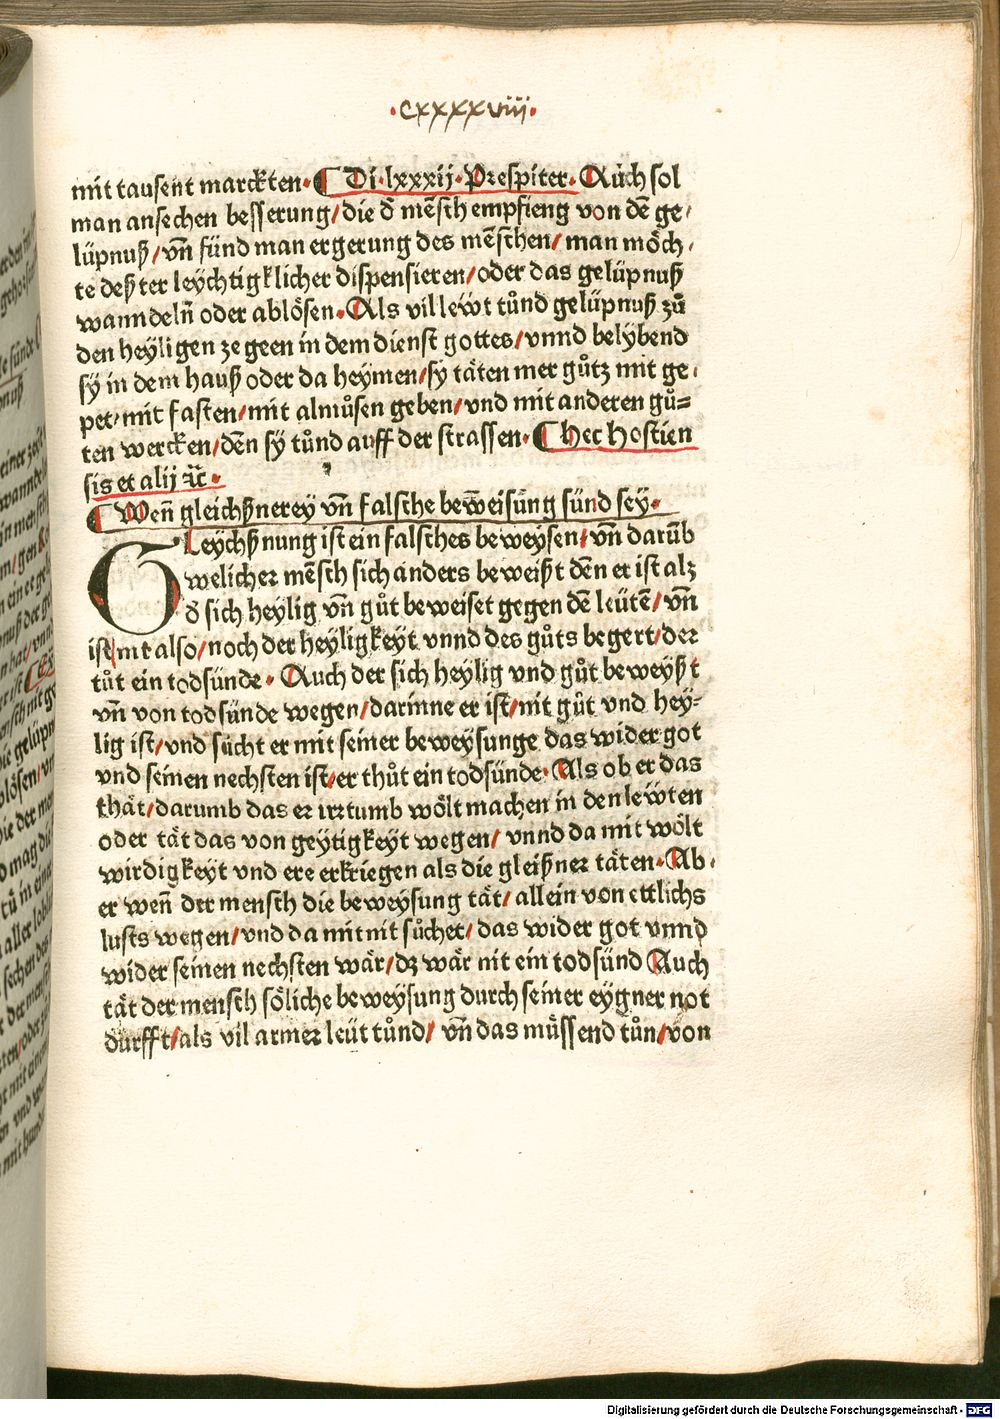 ·cxxxxviii·
mit tausent marckten· ¶ Di·lxxxij·Prespiter· Aůch sol
man ansechen besserung/die d̄ mēsch empfieng von dē ge⸗
lüpnuß/vn̄ fünd man ergerung des mēschen/man möch⸗
te deßter leychtigklicher dispensieren/oder das gelüpnuß
wanndeln̄ oder ablösen·Als vil lewt tůnd gelüpnuß zů
den heyligen ze geen in dem dienst gottes/vnnd belybend
sy in dem hauß oder da heymen/sy täten mer gůtz mit ge⸗
pet/mit fasten/mit almůsen geben/vnd mit anderen gů⸗
ten wercken/dēn sy tůnd auff der strassen· ¶ hec hostien
sis et alij ⁊c̄·
¶ Wen̄ gleichßnerey vn̄ falsche beweisūng sünd sey·
GLeychßnung ist ein falsches beweysen/vn̄ darūb
welicher mēsch sich anders beweißt dēn er ist alz
d̄ sich heylig vn̄ gůt beweiset gegen dē leütē/vn̄
ist nit also/noch der heyligkeyt vnnd des gůts begert/der
tůt ein todsünde· Auch der sich heylig vnd gůt beweyßt
vn̄ von todsünde wegen/darinne er ist/nit gůt vnd hey⸗
lig ist/vnd sücht er mit seiner beweysunge das wider got
vnd seinen nechsten ist/er thůt ein todsünde·Als ob er das
thät/darumb das er irrtumb wölt machen in den lewten
oder tät das von geytigkeyt wegen/ vnnd da mit wölt
wirdigkeyt vnd ere erkriegen als die gleißner täten·Ab⸗
er wen̄ der mensch die beweysung tät/ allein von ettlichs
lusts wegen/vnd da mit nit sůchet/ das wider got vnnd
wider seinen nechsten wär/dz wär nit ein todsünd Auch
tät der mensch söliche beweysung durch seiner eygner not
durfft/als vil armer leüt tůnd/ vn̄ das müssend tůn/von
Digitalisierung gefördert durch die Deutsche Forschungsgemeinschaft - DFG